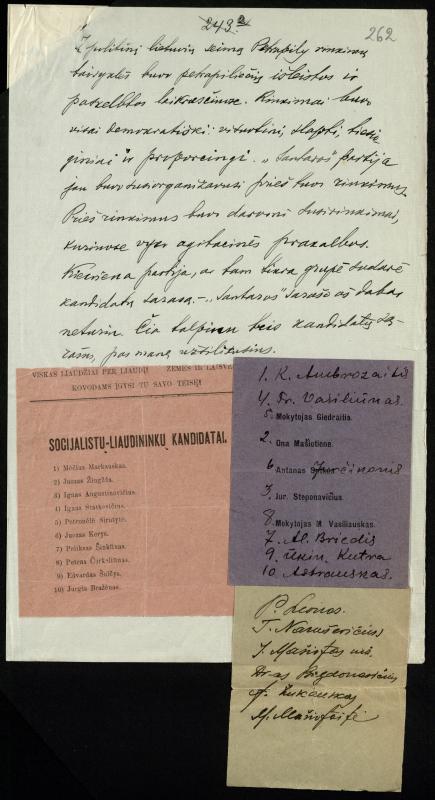 243 a
262
Į politinį lietuvių seimą Petrapily rinkimų
taisyklės buvo petrapiliečių išleistos ir
paskelbtos laikraščiuose. Rinkimai buvo
visai demokratiški: visuotini, slapti, tiesio
giniai ir proporcingi. „Santaros" partija
jau buvo susiorganizavusi prieš tuos rinkimus.
Prieš rinkimus buvo daromi susirinkimai,
kuriuose vyko agitacinės prakalbos.
Kiekviena partija, ar tam tikra grupė sudarė
kandidatų sąrašą. – „Santaros" sąrašo aš dabar
neturiu. Čia talpinu tuos kandidatų są-
rašus, pas mane užsilikusius.
VISKAS LIAUDŽIAI PER LIAUDĮ! ŽEMĖS IR LAISVĖS
KOVODAMS ĮGYSI TU SAVO TEISĘ!
SOCIJALISTŲ-LIAUDININKŲ KANDIDATAI.
1) Mėčius Markauskas.
2) Juozas Žiugžda.
3) Ignas Augustinavičius.
4) Ignas Statkevičius.
5) Petronėlė Sirutytė.
6) Juozas Kerys.
7) Feliksas Šinkūnas.
8) Petras Čirkšliūnas.
9) Edvardas Šuižys.
10) Jurgis Bražėnas.
1. K. Ambrozaitis
4. Dr. Vasiliūnas.
5. Mokytojas Giedraitis.
2. Ona Mašiotienė.
6 Antanas Juškčinonis
3. Jur. Steponavičius.
8. Mokytojas M. Vasiliauskas.
7. Al. Briedis
9. Ūkin. Kutra
10. Astrauskas.
P. Leonas.
T. Narušavičius
J. Mašiotas
Dr-as Bagdonavičius
Žukauskas
M. Mašiotaitė